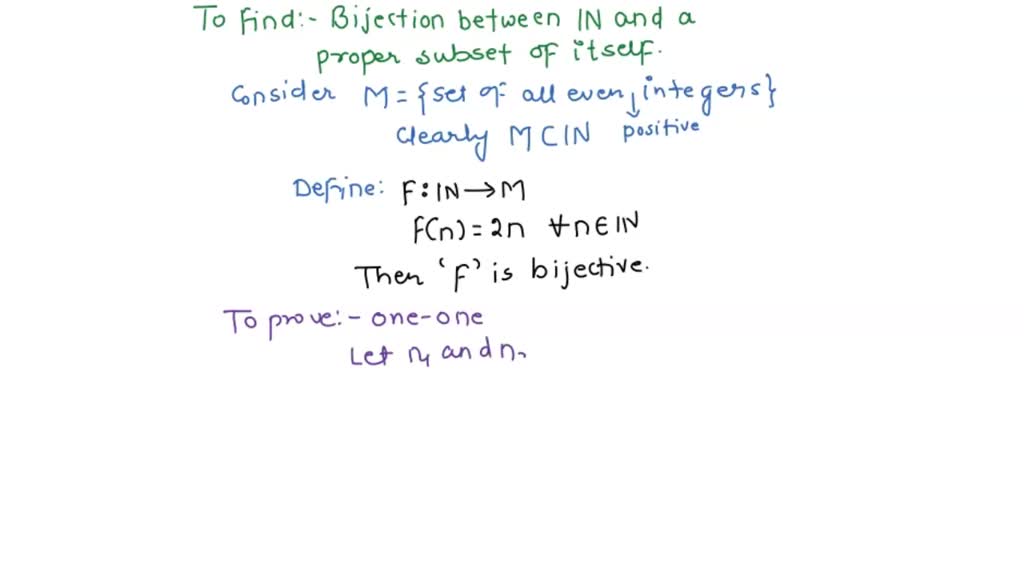 To Find:- Bijection between IN and a
proper subset of itself.
Consider M = {set of all even, integers}
positive
Clearly M ⊂ IN
Define: F: IN → M
F(n) = 2n ∀ n ∈ IN
Then 'F' is bijective.
To prove:- one-one
Let n₁ and n